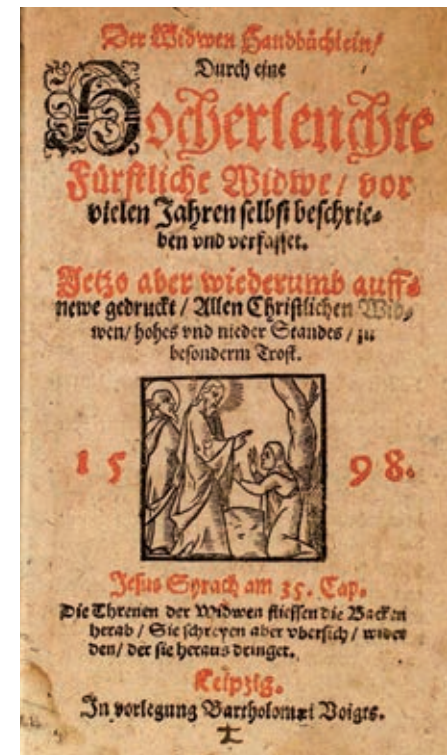 Der Widwen Handbüchlein/
Durch eine
Hocherleuchte
Fürstliche Widwe/ vor
vielen Jahren selbst beschrie-
ben vnd verfasset.
Jetzo aber wiederumb auff-
newe gedruckt / Allen Christlichen Wid-
wen/ hohes vnd nieder Standes / zu
besonderm Trost.
15 98.
Jesus Syrach am 35. Cap.
Die Threnen der Widwen fliessen die Backen
herab / Sie schreyen aber vbersich / wider
den/ der sie heraus dringet.
Leipzig.
In vorlegung Bartholomæi Voigts.